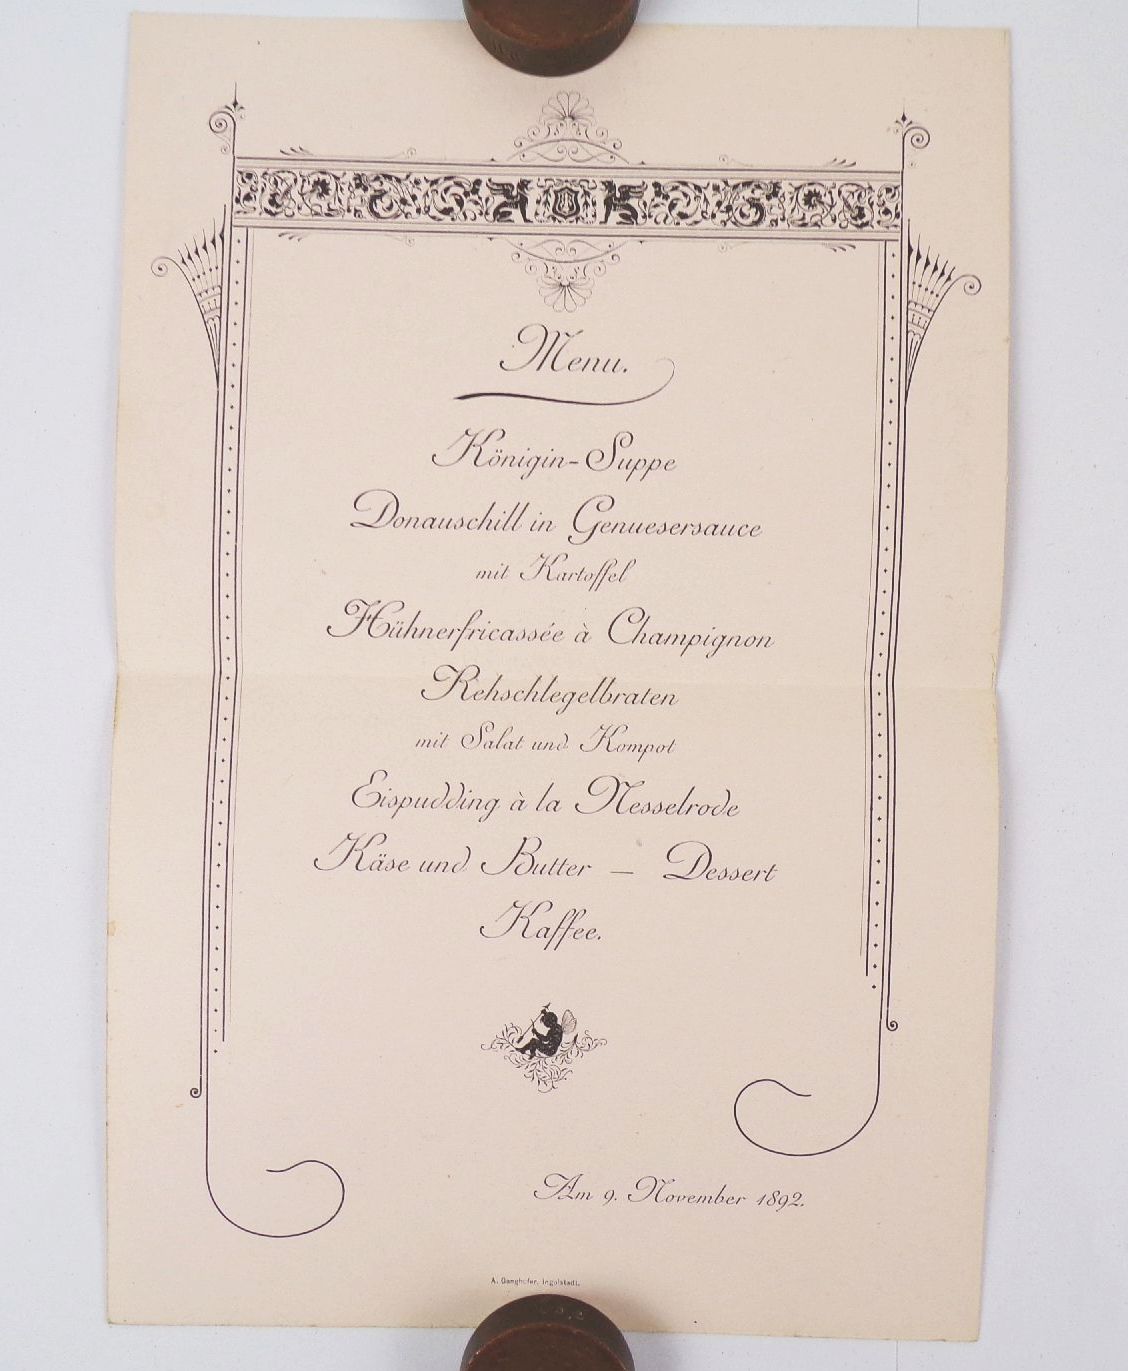 Menu.
Königin-Suppe
Donauschill in Genuesersauce
mit Kartoffel
Hühnerfricassée à Champignon
Rehschlegelbraten
mit Salat und Kompot
Eispudding à la Nesselrode
Käse und Butter — Dessert
Kaffee.
Am 9. November 1892.
A. Ganghofer, Ingolstadt.